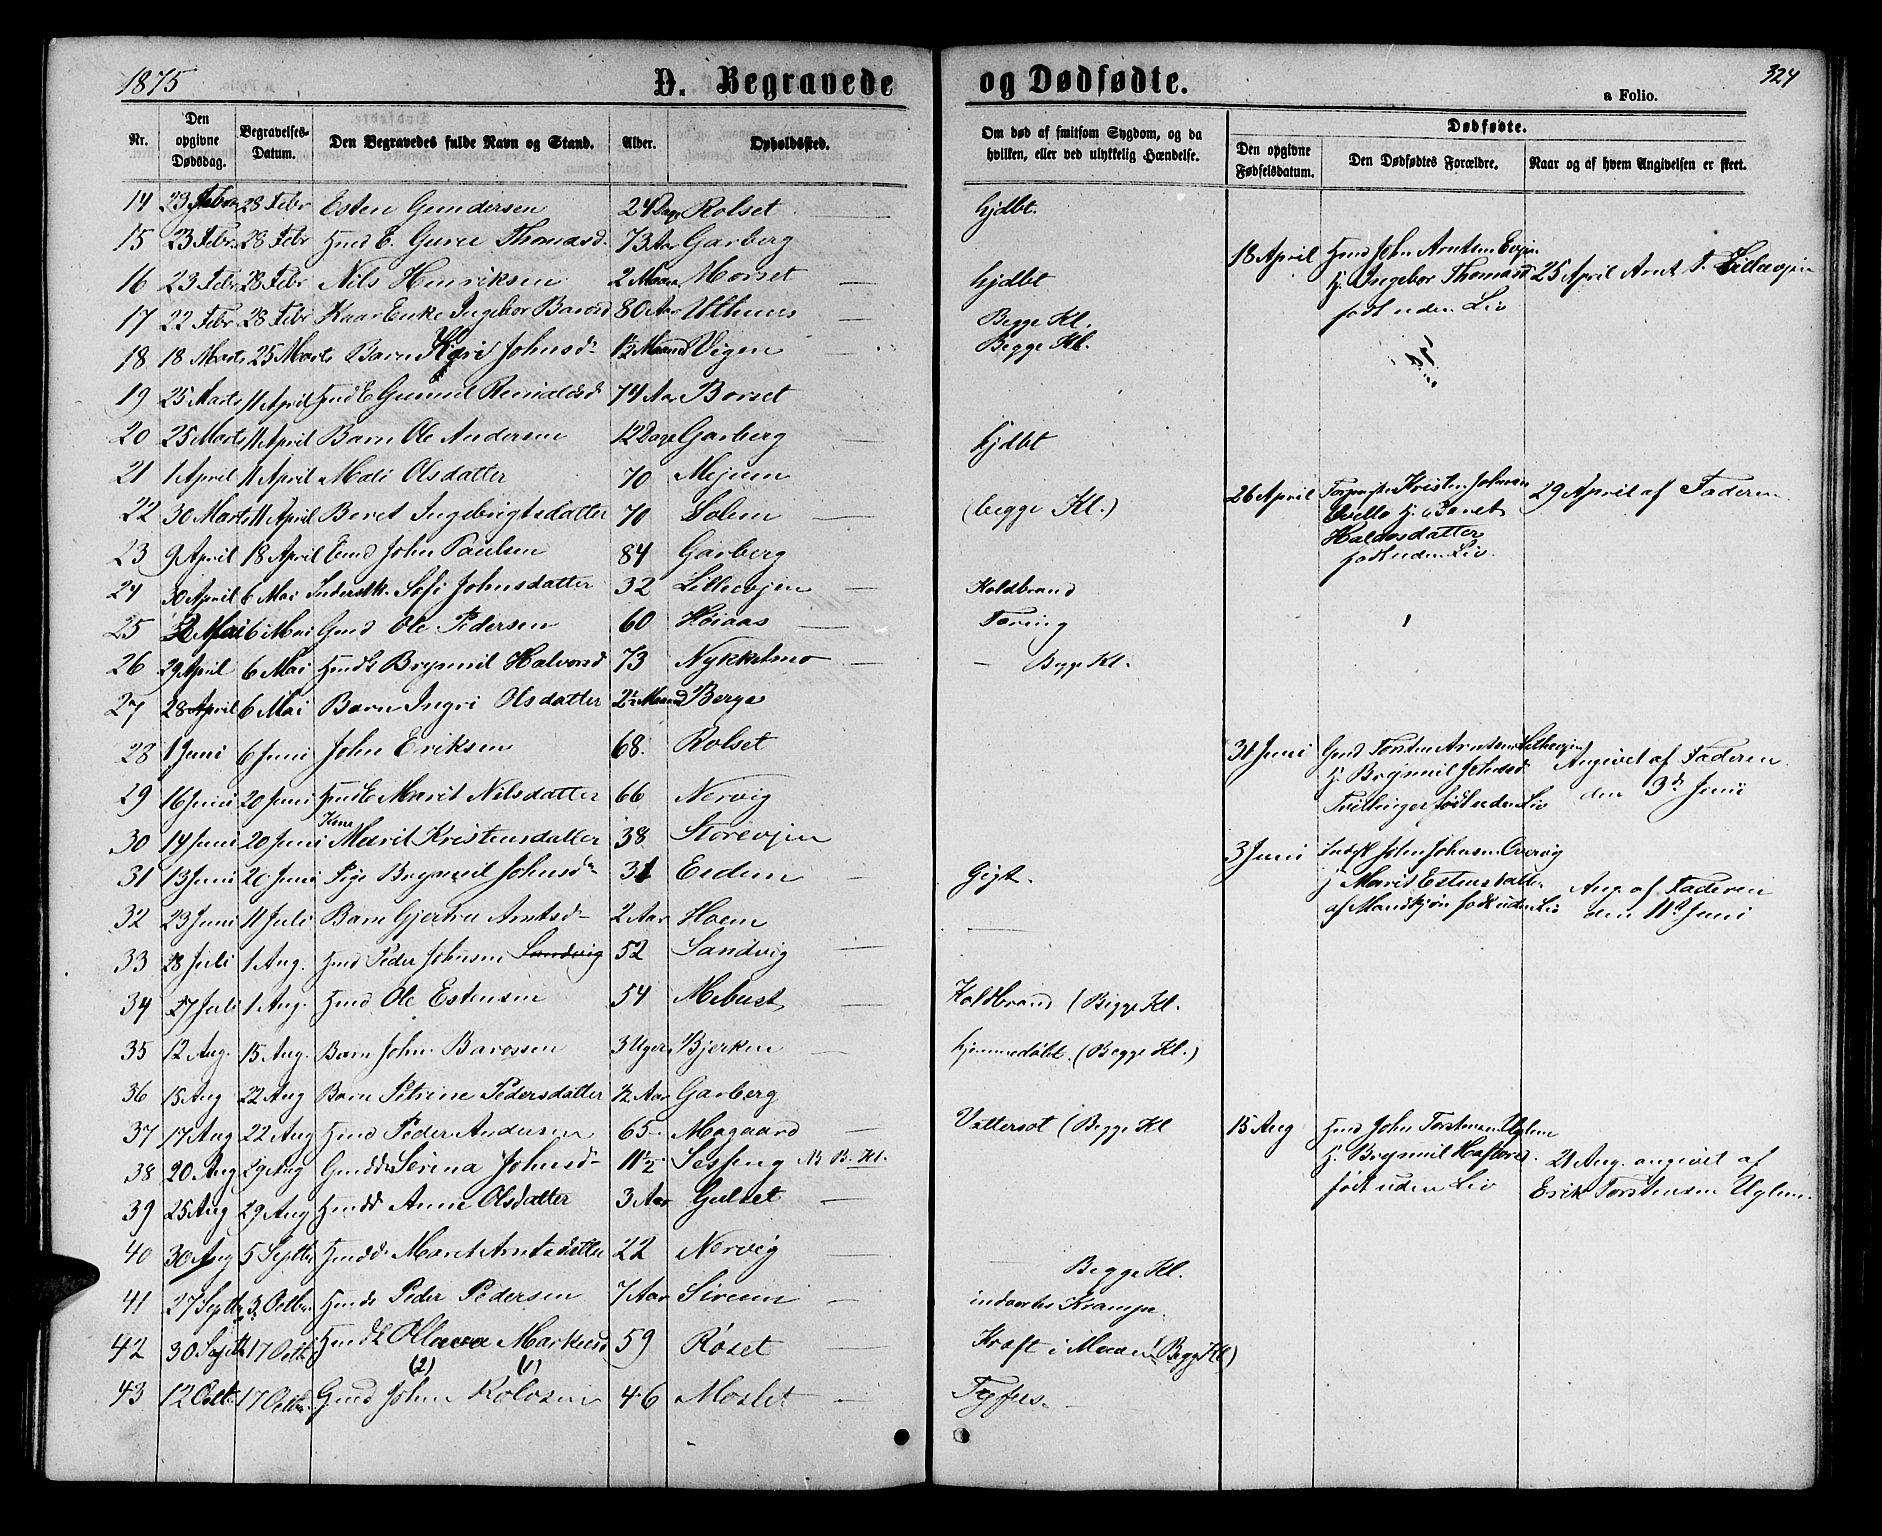 1875 D. Begravede og Dødfødte. 324
a Folio.
Nr. Den opgivne Dødsdag. Begravelses-Datum. Den Begravedes fulde Navn og Stand. Alder. Opholdssted. Om død af smitsom Sygdom, og da hvilken, eller ved ulykkelig Hændelse. Dødfødte.
Den opgivne Fødselsdatum. Den Dødfødtes Forældre. Naar og af hvem Angivelsen er skeet.
14 23 Febr 28 Febr Esten Gundersen 24 Dage Rolset hjdbt.
15 23 Febr 28 Febr Gmd E. Guru Thomasd. 73 Aar Garberg
18 April Gmd John Arntsen Evjen
16 23 Febr 28 Febr Nils Henriksen 2 Maan Morset hjdbt
H. Ingebor Thomasd 25 April Arnt T. Lillevjen
17 22 Febr 28 Febr Kaar Enke Ingebor Barosd 80 Aar Uthuus Begge Kl.
født uden Liv
18 18 Marts 25 Marts Barn Kari Johnsd 1½ Maaned Vigen Begge Kl.
19 25 Marts 11 April Gmd E Gunnil Reinaldsd 74 Aar Borset
20 25 Marts 11 April Barn Ole Andersen 12 Dage Garberg hjdbt
21 1 April 11 April Mali Olsdatter 70 Mejum
26 April Kristen Johnsen 29 April af Faderen
22 30 Marts 11 April Beret Ingebrigtsdatter 70 Solem (begge Kl.)
Evello H. Beret
Haldosdatter
23 9 April 18 April John Paulsen 84 Garberg
født uden Liv.
24 30 April 6 Mai Inderstk. Sofi Johnsdatter 32 Lillevjen Koldbrand
25 2 Mai 6 Mai Gmd Ole Pedersen 60 Høiaas Tæring
26 29 April 6 Mai Gmds Brynnil Halvorsd 73 Nykkelmo — Begge Kl.
27 28 April 6 Mai Barn Ingri Olsdatter 2½ Maaned Berge
28 1 Juni 6 Juni John Eriksen 68. Rolset
31 Juni Gmd Torsten Arntsen Lillevjen Angivet af Faderen
H. Brynnil Johnsd
29 16 Juni 20 Juni Gmd E Marit Nilsdatter 66 Nervig
Tvillinger født uden Liv den 3d Juni
30 14 Juni 20 Juni Kone Marit Kristensdatter 38 Storevjen
3 Juni Indst John Johnsen Overvig
31 13 Juni 20 Juni Pige Brynnil Johnsd 31 Eidem Gigt.
H. Marit Estensdatter Ang. af Faderen
32 23 Juni 11 Juli Barn Gjertru Arntsd 2 Aar Hoem —
af Mandkjøn født uden Liv den 11d Juni
33 28 Juli 1 Aug. Gmd Peder Johnsen Sandvig 52 Sandvig
34 27 Juli 1 Aug. Gmd Ole Estensen 54 Mebust Koldbrand (Begge Kl.
35 12 Aug. 15 Aug. Barn John Barossen 3 Uger Bjerken hjemmedøbt. (Begge Kl.)
36 15 Aug 22 Aug Barn Petrine Pedersdatter ½ Aar Garberg
37 17 Aug 22 Aug Gmd Peder Andersen 65 Mogaard Vattersot (Begge Kl
15 Aug Gmd John Torstensen Uglem
38 20 Aug 29 Aug Gmdd Serina Johnsd 11½ Sesseng N B. Kl.
H. Brynnil Haftorsd. 21 Aug. angivet af
39 25 Aug 29 Aug Gmdd Anne Olsdatter 3 Aar Gulset
født uden Liv Erik Torstensen Uglem
40 30 Aug 5 Septbr Gmdd Marit Arntsdatter 22 Nervig — Begge Kl.
41 27 Septbr 3 Octbr Gmds Peder Pedersen 7 Aar Sirum indvortes Krampe.
42 30 Septb 17 Octb Gmds Markusd 59 Røset Kræft i Maven (Begge Kl)
(2) (1)
43 12 Octb 17 Octbr. Gmd John Rolvsen 46 Moslet Tyfus.